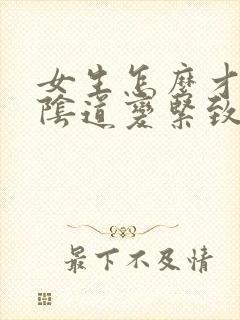 女生怎麼才
陰道變緊致
最下不及情